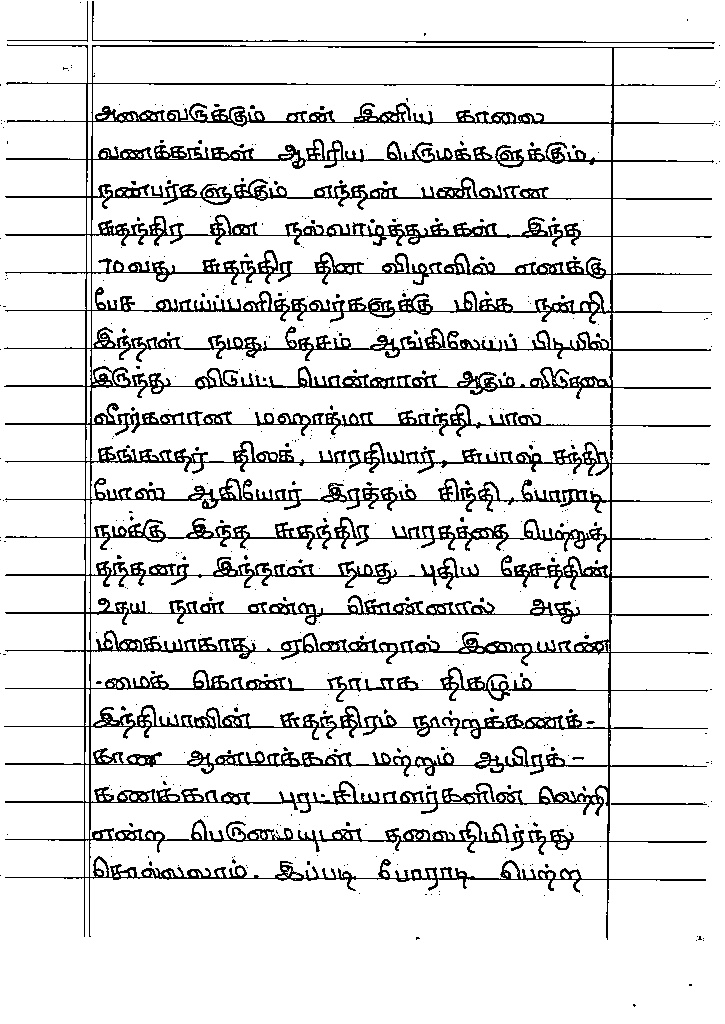 அனைவருக்கும் என் இனிய காலை
வணக்கங்கள் ஆசிரிய பெருமக்களுக்கும்,
நண்பர்களுக்கும் எந்தன் பணிவான
சுதந்திர தின நல்வாழ்த்துக்கள். இந்த
70வது சுதந்திர தின விழாவில் எனக்கு
பேச வாய்ப்பளித்தவர்களுக்கு மிக்க நன்றி
இந்நாள் நமது தேசம் ஆங்கிலேயப் பிடியில்
இருந்து விடுபட்ட பொன்னாள் ஆகும். விடுதலை
வீரர்களான மஹாத்மா காந்தி, பால
கங்காதர் திலக், பாரதியார், சுபாஷ் சந்திர
போஸ் ஆகியோர் இரத்தம் சிந்தி, போராடி
நமக்கு இந்த சுதந்திர பாரதத்தை பெற்றுத்
தந்தனர். இந்நாள் நமது புதிய தேசத்தின்
உதய நாள் என்று சொன்னால் அது
மிகையாகாது. ஏனென்றால் இறையாண்
-மைக் கொண்ட நாடாக திகழும்
இந்தியாவின் சுதந்திரம் நூற்றுக்கணக்-
கான ஆன்மாக்கள் மற்றும் ஆயிரக்-
கணக்கான புரட்சியாளர்களின் வெற்றி
என்ற பெருமையுடன் தலைநிமிர்ந்து
சொல்லலாம். இப்படி போராடி பெற்ற